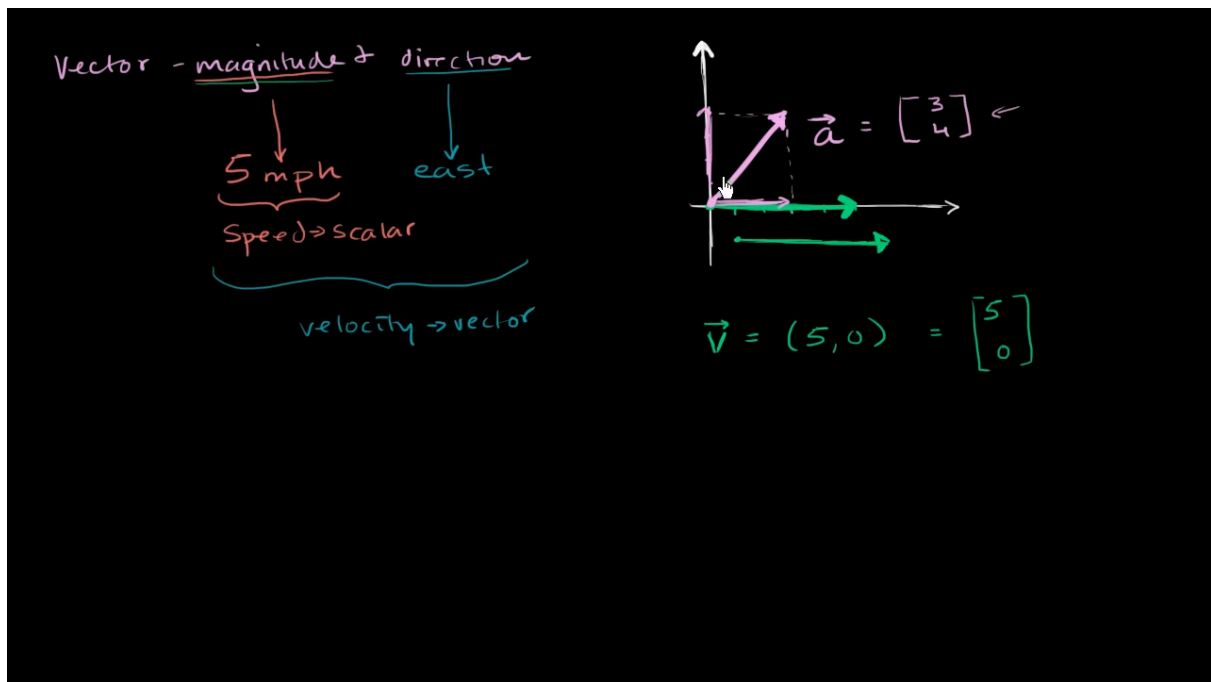 Vector - magnitude & direction
5 mph east
Speed → scalar
velocity → vector
a⃗ = [3 4]
v⃗ = (5,0) = [5 0]